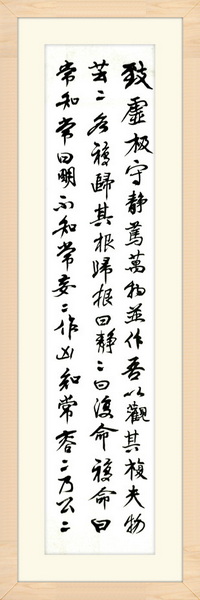 致虚極守静篤萬物並作吾以觀其複夫物
芸二各複歸其根歸根曰静二曰復命複命曰
常知常曰明不知常妄二作凶知常容二乃公二